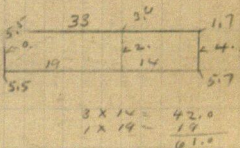 33
5.5 3.4 1.7
0. 2. 4.
19 14
5.5 5.7
3 x 14 = 42.0
1 x 19 = 19
61.0